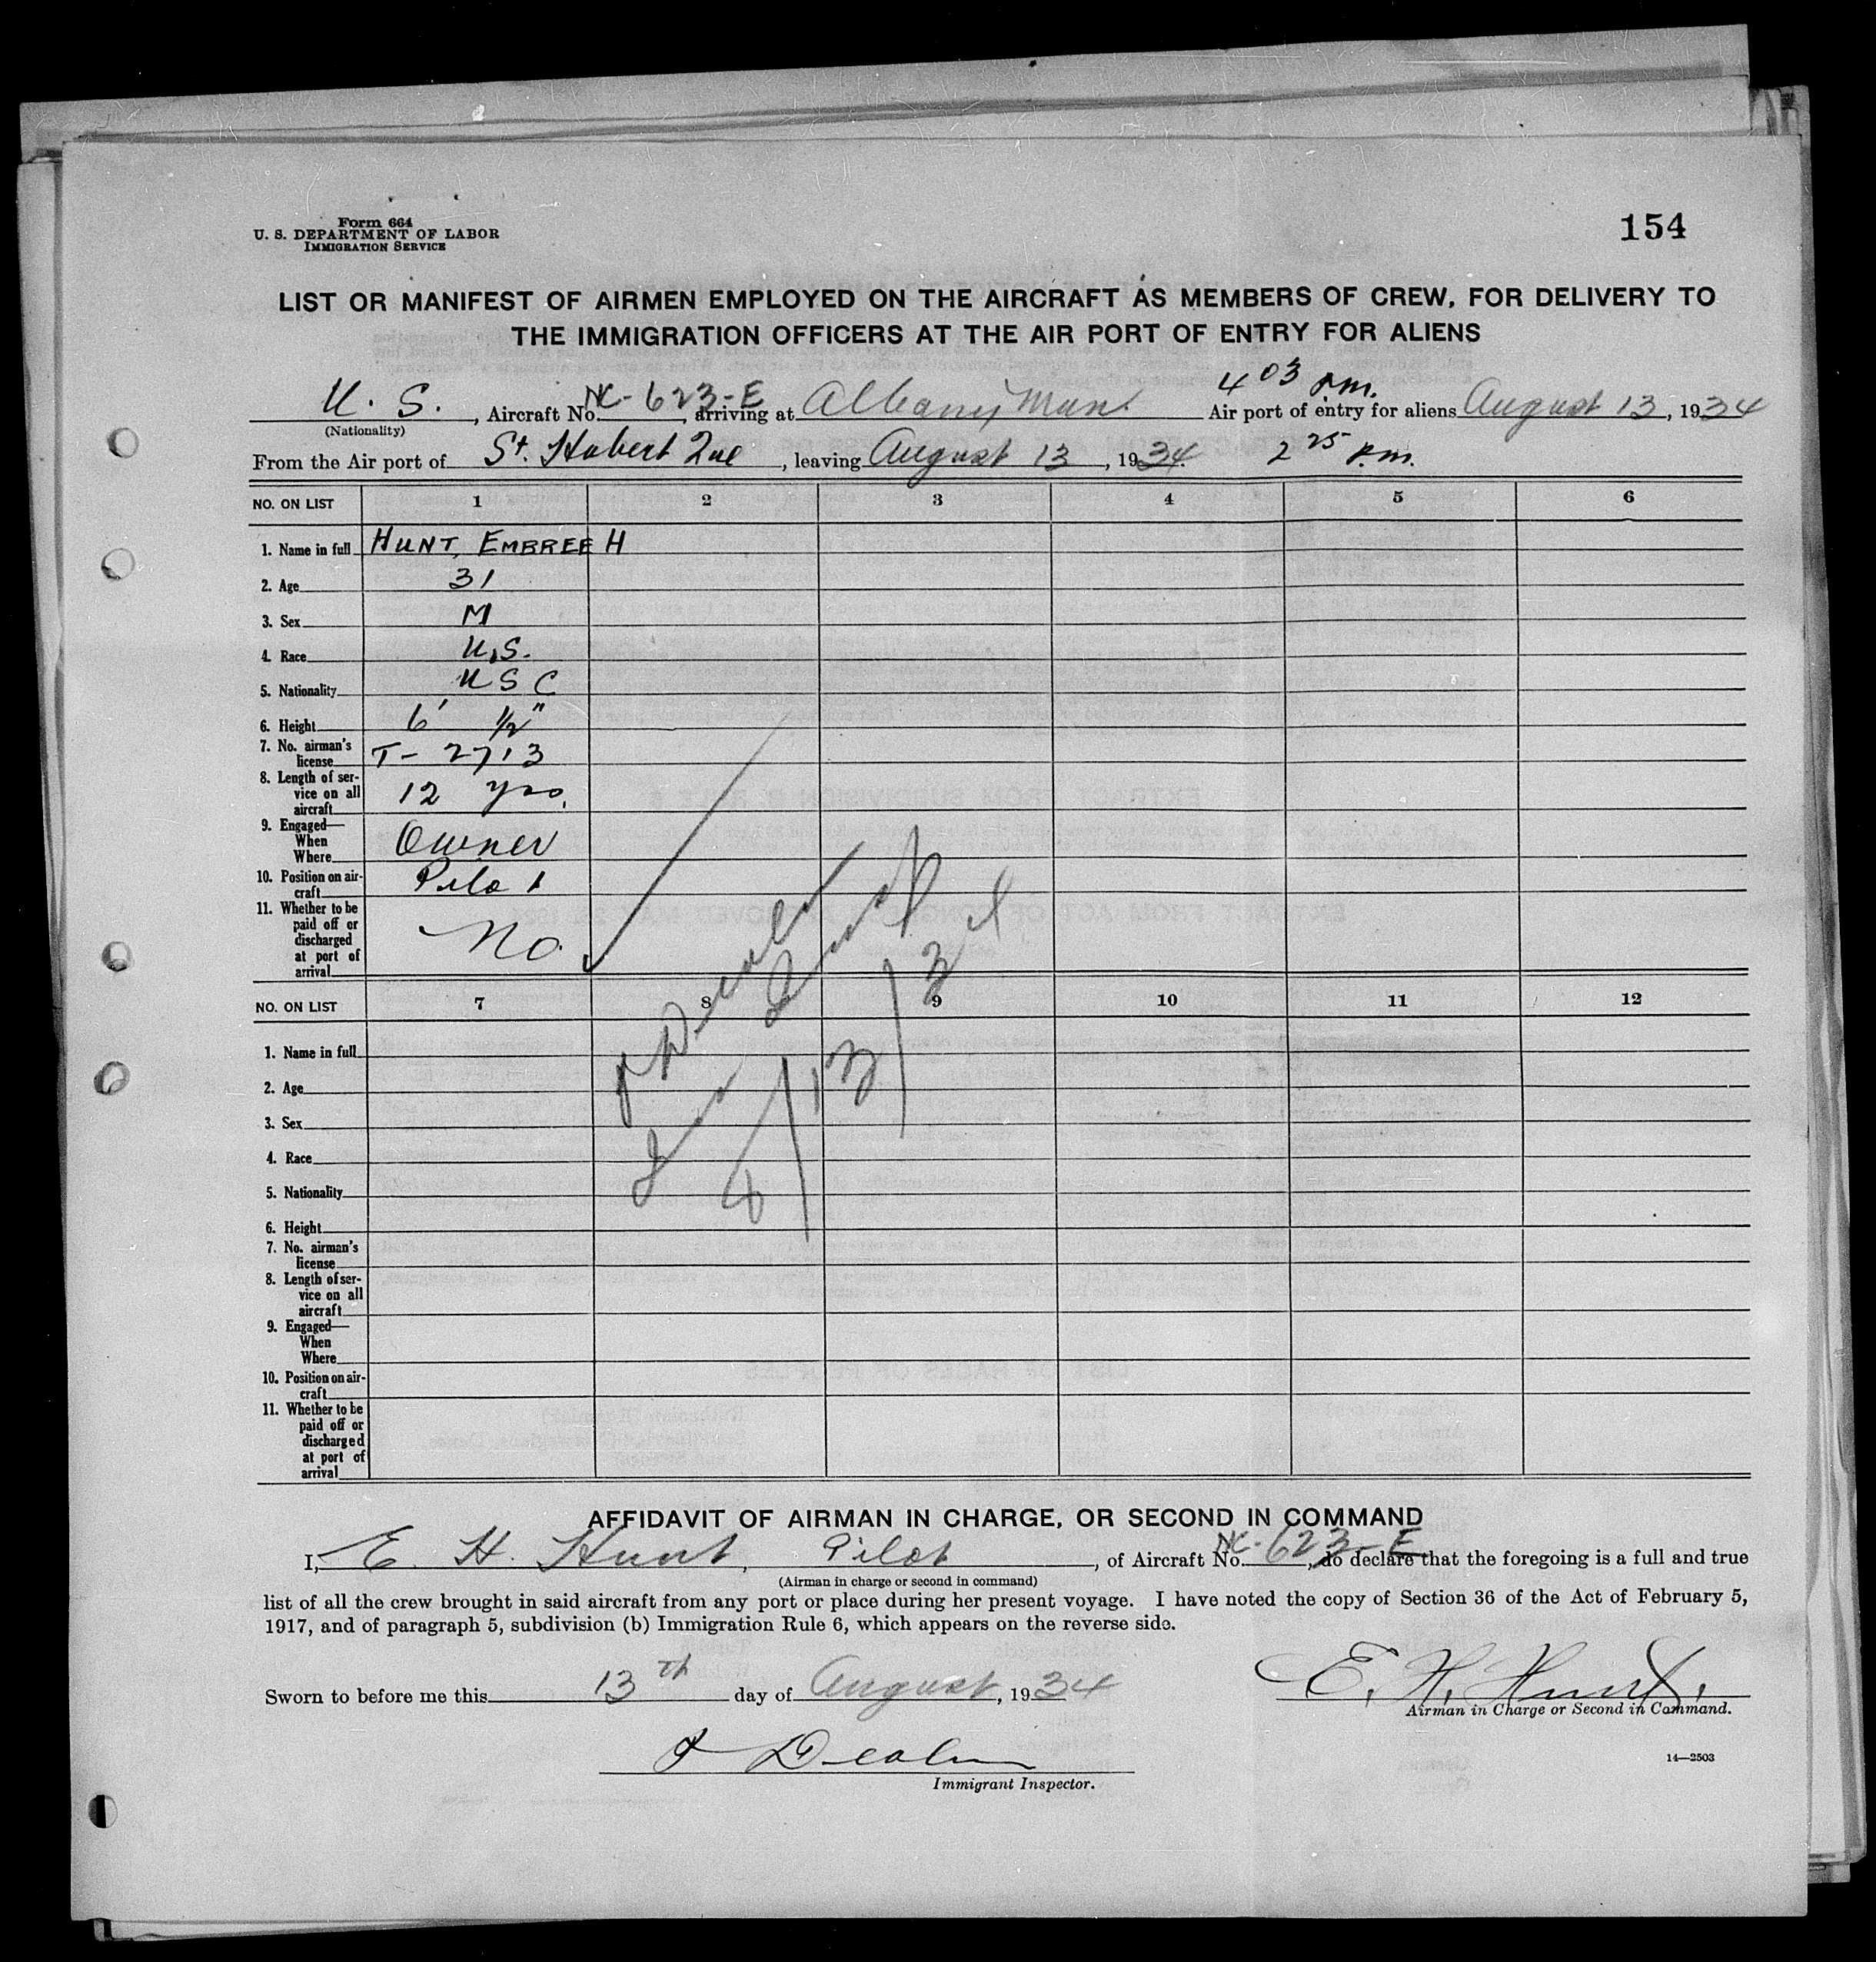 Form 664
U. S. DEPARTMENT OF LABOR
IMMIGRATION SERVICE
154
LIST OR MANIFEST OF AIRMEN EMPLOYED ON THE AIRCRAFT AS MEMBERS OF CREW, FOR DELIVERY TO
THE IMMIGRATION OFFICERS AT THE AIR PORT OF ENTRY FOR ALIENS
U. S., Aircraft No. NC-623-E, arriving at Albany Mun. Air port of entry for aliens August 13, 1934
4 03 P.m.
(Nationality)
From the Air port of St. Hubert Que, leaving August 13, 1934. 2 25 P.m.
NO. ON LIST 1 2 3 4 5 6
1. Name in full HUNT, EMBREE H
2. Age 31
3. Sex M
4. Race U.S.
5. Nationality USC
6. Height 6' 1/2"
7. No. airman's
license T-2713
8. Length of ser-
vice on all
aircraft 12 yrs.
9. Engaged—
When
Where Owner
10. Position on air-
craft Pilot
11. Whether to be
paid off or
discharged
at port of
arrival No.
NO. ON LIST 7 8 9 10 11 12
1. Name in full
2. Age
3. Sex
4. Race
5. Nationality
6. Height
7. No. airman's
license
8. Length of ser-
vice on all
aircraft
9. Engaged—
When
Where
10. Position on air-
craft
11. Whether to be
paid off or
discharged
at port of
arrival
8/13/34
AFFIDAVIT OF AIRMAN IN CHARGE, OR SECOND IN COMMAND
I, E. H. Hunt, Pilot, of Aircraft No. NC-623-E, do declare that the foregoing is a full and true
(Airman in charge or second in command)
list of all the crew brought in said aircraft from any port or place during her present voyage. I have noted the copy of Section 36 of the Act of February 5,
1917, and of paragraph 5, subdivision (b) Immigration Rule 6, which appears on the reverse side.
Sworn to before me this 13th day of August, 1934
E. H. Hunt.
Airman in Charge or Second in Command.
Immigrant Inspector.
14—2503